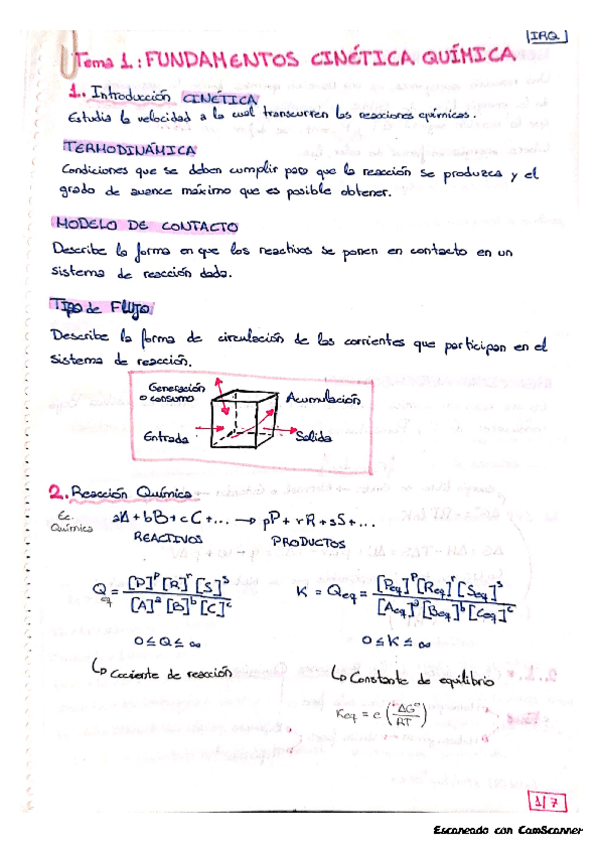 IRQ
Tema 1.: FUNDAMENTOS CINÉTICA QUÍMICA
1. Introducción CINÉTICA
Estudia la velocidad a la cual transcurren las reacciones químicas.
TERMODINÁMICA
Condiciones que se deben cumplir para que la reacción se produzca y el
grado de avance máximo que es posible obtener.
MODELO DE CONTACTO
Describe la forma en que los reactivos se ponen en contacto en un
sistema de reacción dado.
Tipo de Flujo
Describe la forma de circulación de las corrientes que participan en el
sistema de reacción.
Generación
o consumo
Acumulación
Entrada
Salida
2. Reacción Química
Ec. Química
aA + bB + cC + ... → pP + rR + sS + ...
REACTIVOS
PRODUCTOS
Q_eq = [P]^p [R]^r [S]^s / [A]^a [B]^b [C]^c
K = Q_eq = [P_eq]^p [R_eq]^r [S_eq]^s / [A_eq]^a [B_eq]^b [C_eq]^c
0 ≤ Q ≤ ∞
0 ≤ K ≤ ∞
↳ Cociente de reacción
↳ Constante de equilibrio
K_eq = e (-ΔG° / RT)
1/7
Escaneado con CamScanner